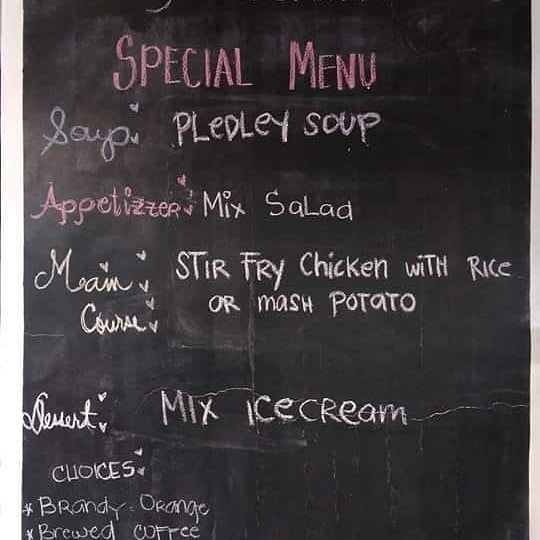 SPECIAL MENU
Soup: PLEDLEY SOUP
Appetizzer: Mix SaLad
Main Course: STIR FRY Chicken wiTH Rice
OR mASH POTATO
Dessert: MIX icecReam
CHOICES:
* BRANDY ORANGE
* BRewed COFFee